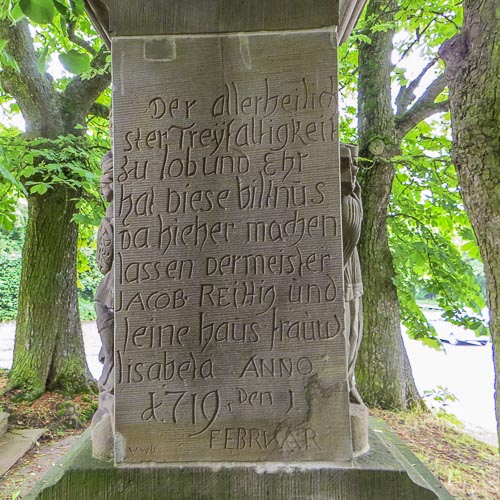 Der allerheilich
ster Treyfaltigkeit
zu lob und Ehr
hat diese billnus
da hieher machen
lassen der meister
JACOB REISTIG und
seine haus frauw
lisabela ANNO
1719, Den 1
FEBRUAR
WWB